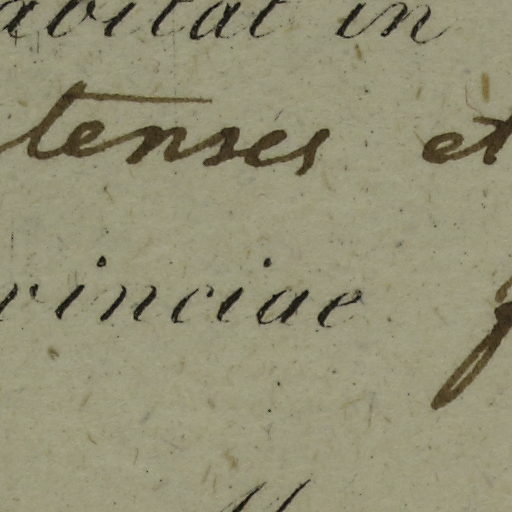 abitat in
tenses et
vinciae